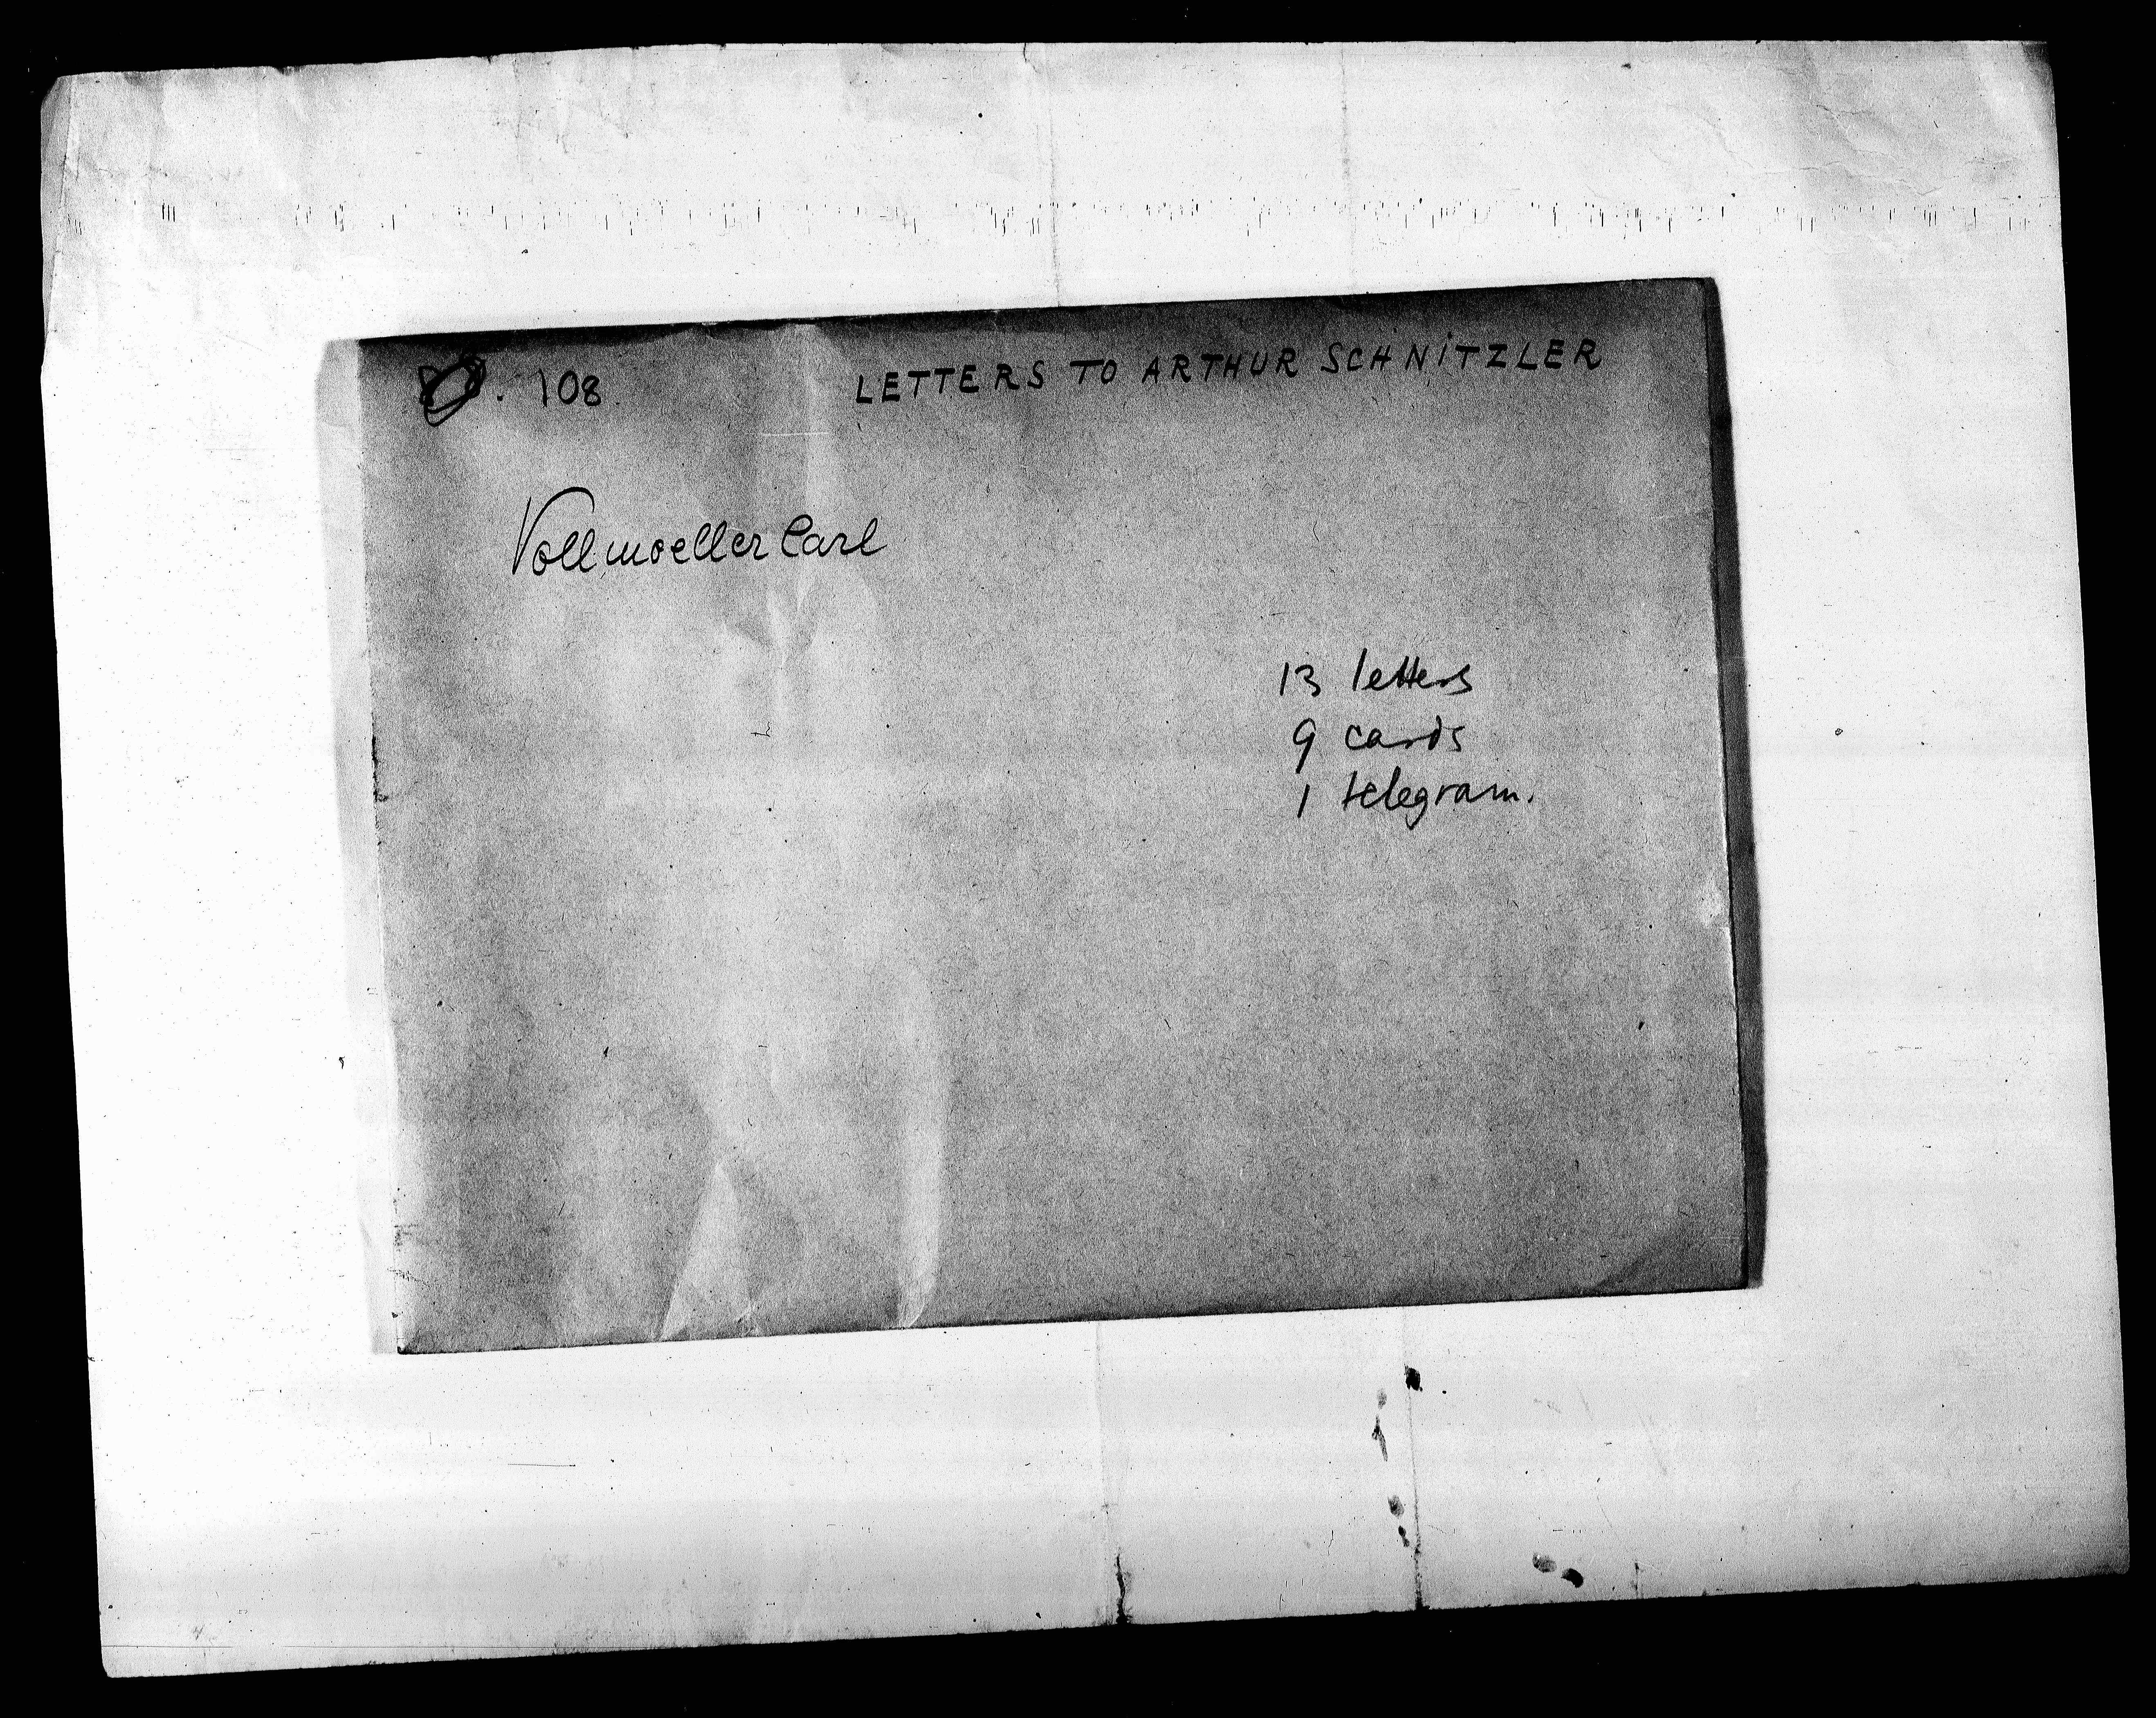 . 108 LETTERS TO ARTHUR SCHNITZLER
Vollmoeller Carl
13 letters
9 cards
1 telegram.